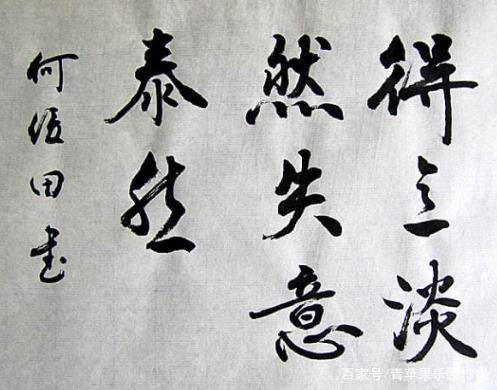 得意淡
然失意
泰然
何田书
百家号/青苹果乐园